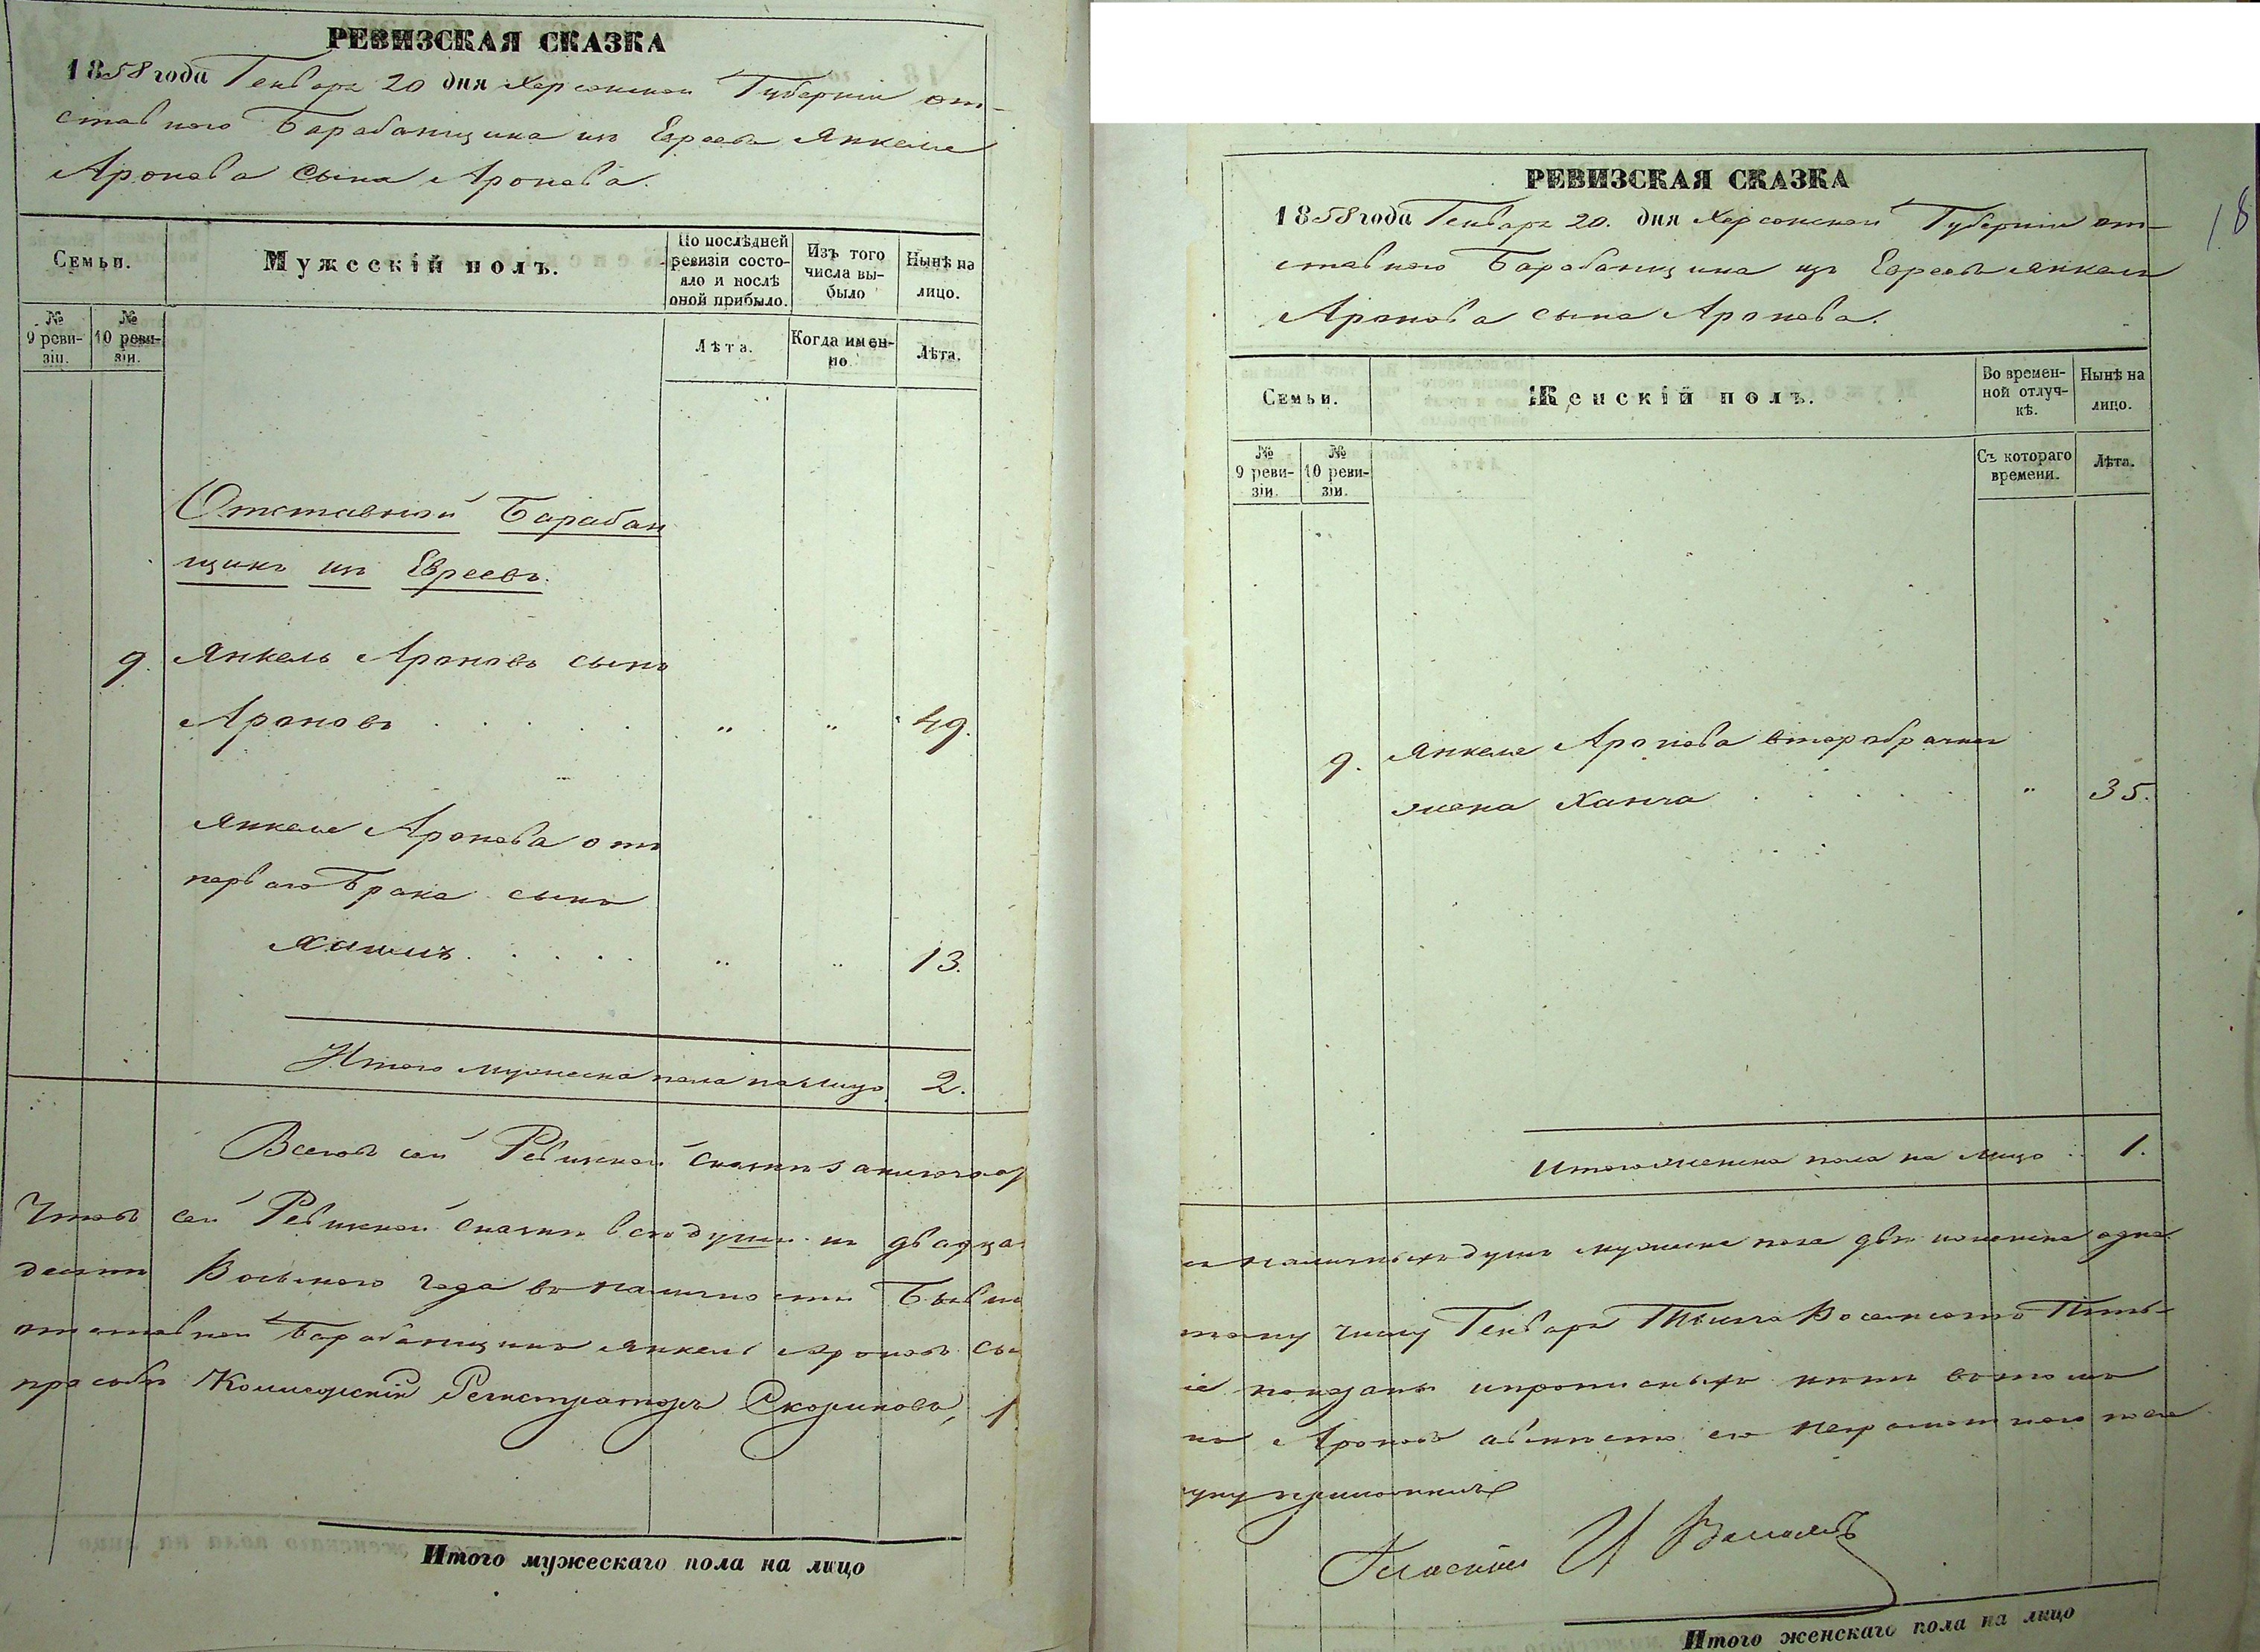 РЕВИЗСКАЯ СКАЗКА
1858 года Генваря 20 дня Херсонской Губернии от-
ставного Барабанщика изъ Евреевъ Янкеля
Аронова сына Аронова.
Семьи.
Мужескій полъ.
По послѣдней
ревизіи состо-
яло и послѣ
оной прибыло.
Изъ того
числа вы-
было
Нынѣ на
лицо.
№
9 реви-
зіи.
№
10 реви-
зіи.
Лѣта.
Когда имен-
но.
Лѣта.
Отставной Барабан
щикъ изъ Евреевъ.
9. Янкель Ароновъ сынъ
Ароновъ . . . . " " 49.
Янкеля Аронова отъ
перваго брака сынъ
Хаимъ. . . . . " " 13.
Итого мужеска пола на лицо 2.
Всего въ сей Ревизской сказки заключает
Что въ сей Ревизской сказки всѣ души къ двадца
восьмого года въ наличности бывш
отставной Барабанщикъ Янкель Ароновъ сы
прозьбѣ Коллежскій Регистраторъ Скориковъ,
Итого мужескаго пола на лицо
РЕВИЗСКАЯ СКАЗКА
18
1858 года Генваря 20. дня Херсонской Губерніи от-
ставного Барабанщика изъ Евреевъ Янкеля
Аронова сына Аронова.
Семьи.
Женскій полъ.
Во времен-
ной отлуч-
кѣ.
Нынѣ на
лицо.
№
9 реви-
зіи.
№
10 реви-
зіи.
Съ котораго
времени.
Лѣта.
9. Янкеля Аронова второбрачная
жена Ханча . . . . . " 35.
Итого женска пола на лицо . . 1.
наличныхъ душъ мужеска пола двѣ и женска одна.
тому числу Генваря Тысяча Восемьсотъ Пять-
показаны и прописныхъ нѣтъ въ томъ
Ароновъ а вмѣсто его неграмотнаго по его
руку приложилъ
Гласный И
Итого женскаго пола на лицо